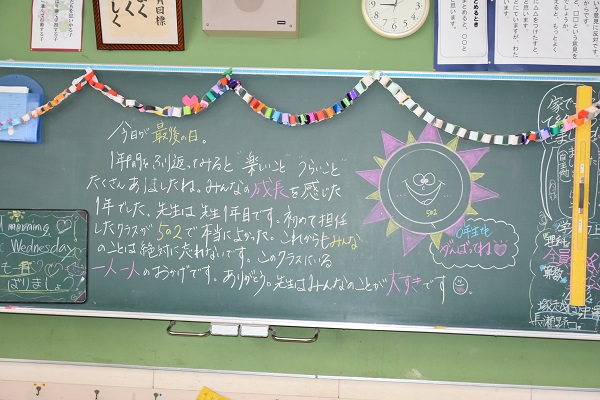 今日が最後の日。
1年間をふり返ってみると"楽しいこと""つらいこと"
たくさんありましたね。みんなの成長を感じた
1年でした。先生は先生1年目です。初めて担任
したクラスが5の2で本当によかった。これからもみんな
のことは絶対に忘れないです。このクラスにいる
一人一人のおかげです。ありがとう。先生はみんなのことが大すきです。
5の2
6年生でも
がんばってね
morning
Wednesday
月目標
まとめるとき
理科
全員
算数